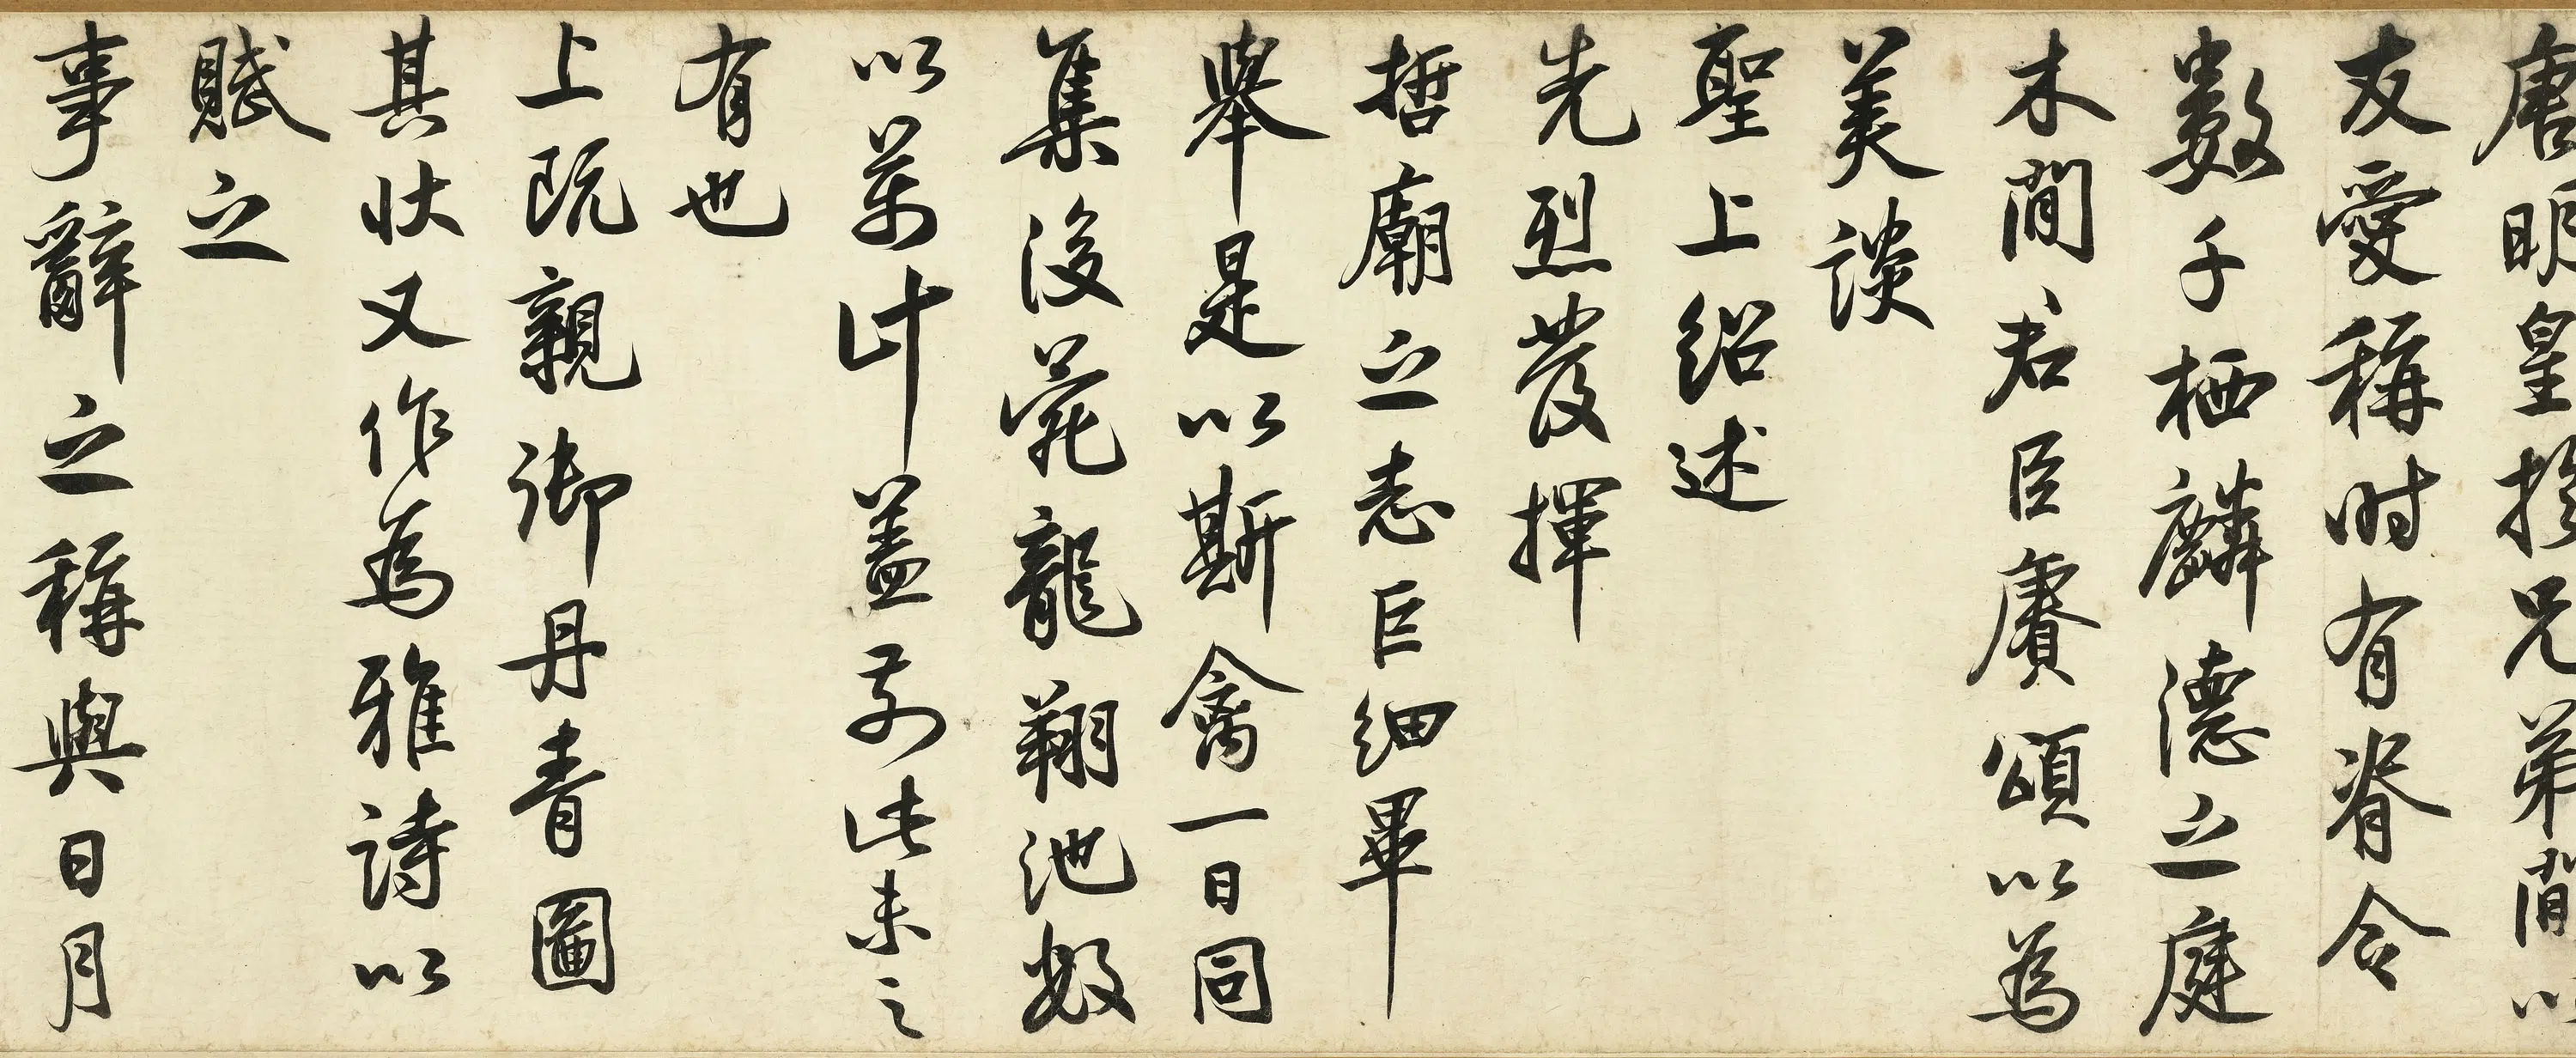 唐明皇於兄弟間以
友愛稱時有脊令
數千栖麟德之庭
木間君臣賡頌以為
美談
聖上紹述
先烈發揮
哲廟之志巨細畢
舉是以斯禽一日同
集後苑龍翔池數
以萬計蓋前此未之
有也
上既親御丹青圖
其狀又作為雅詩以
賦之
事辭之稱與日月